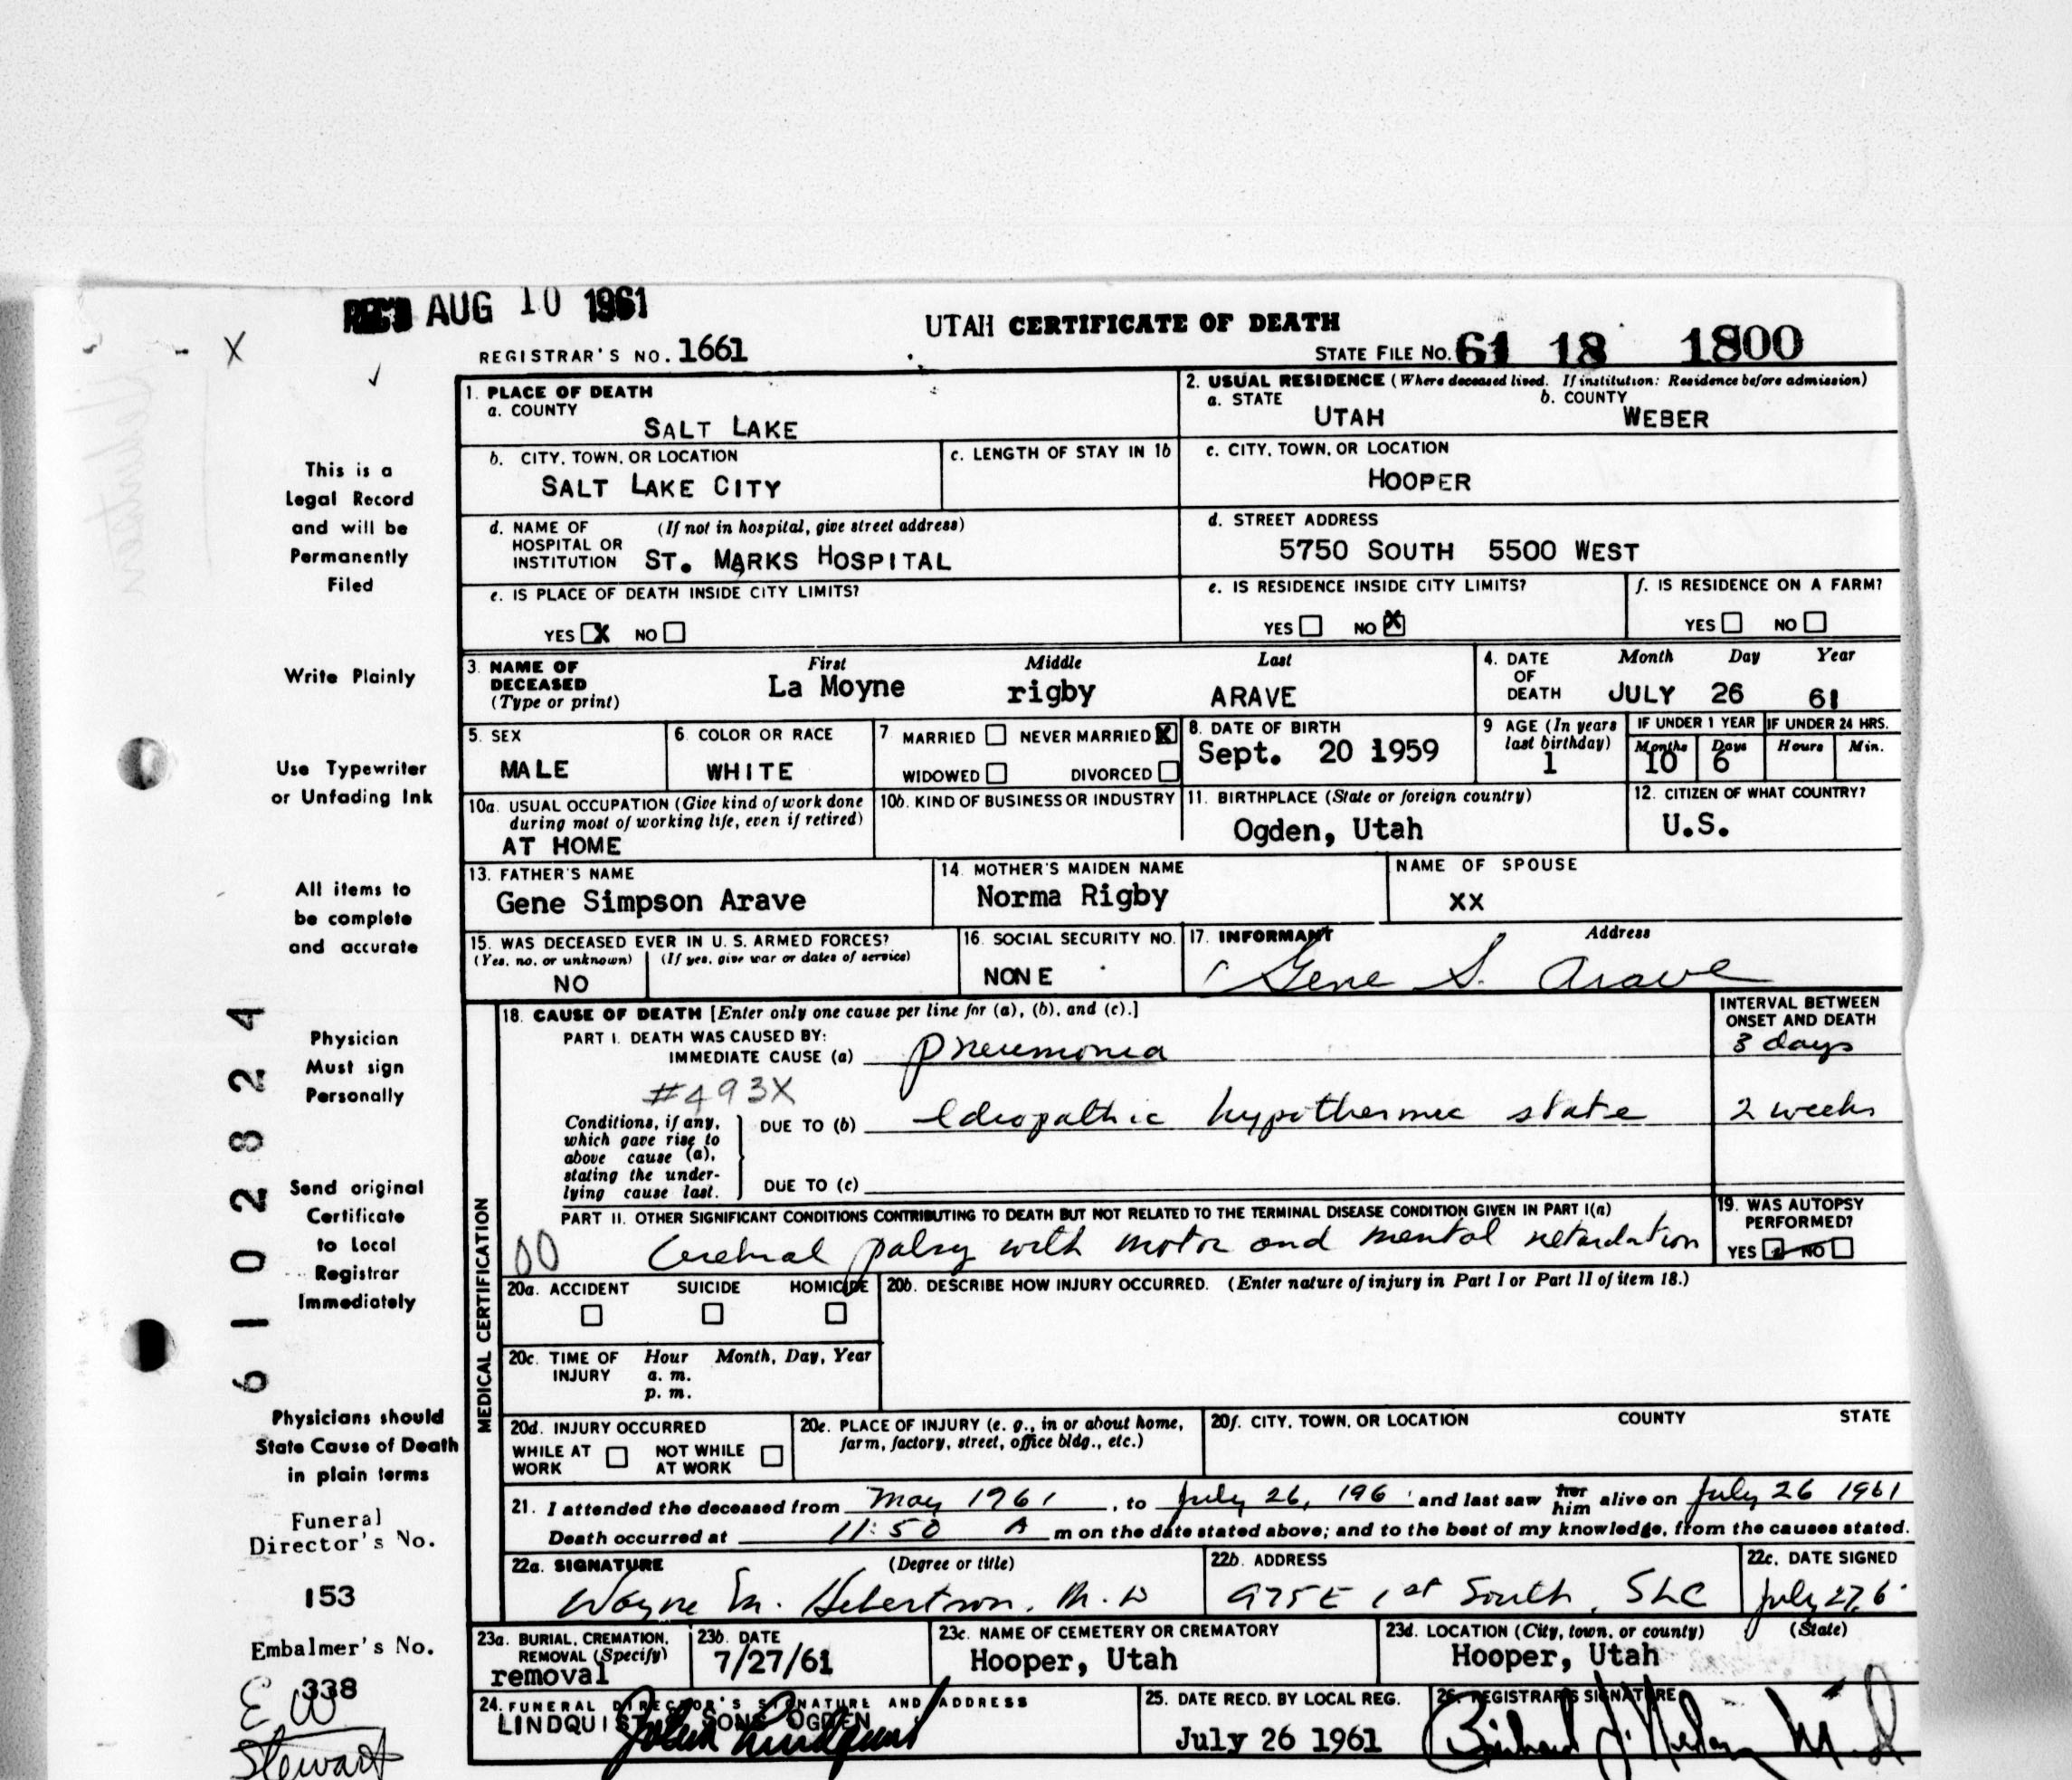 REC'D AUG 10 1961
UTAH CERTIFICATE OF DEATH
REGISTRAR'S NO. 1661
STATE FILE NO. 61 18 1800
1. PLACE OF DEATH
a. COUNTY
SALT LAKE
2. USUAL RESIDENCE (Where deceased lived. If institution: Residence before admission)
a. STATE b. COUNTY
UTAH WEBER
b. CITY, TOWN, OR LOCATION
SALT LAKE CITY
c. LENGTH OF STAY IN 1b
c. CITY, TOWN, OR LOCATION
HOOPER
d. NAME OF (If not in hospital, give street address)
HOSPITAL OR
INSTITUTION ST. MARKS HOSPITAL
d. STREET ADDRESS
5750 SOUTH 5500 WEST
e. IS PLACE OF DEATH INSIDE CITY LIMITS?
YES X NO
e. IS RESIDENCE INSIDE CITY LIMITS?
YES NO X
f. IS RESIDENCE ON A FARM?
YES NO
3. NAME OF DECEASED (Type or print)
First Middle Last
La Moyne rigby ARAVE
4. DATE OF DEATH
Month Day Year
JULY 26 61
5. SEX
MALE
6. COLOR OR RACE
WHITE
7. MARRIED NEVER MARRIED X
WIDOWED DIVORCED
8. DATE OF BIRTH
Sept. 20 1959
9 AGE (In years last birthday)
1
IF UNDER 1 YEAR IF UNDER 24 HRS.
Months Days Hours Min.
10 6
10a. USUAL OCCUPATION (Give kind of work done
during most of working life, even if retired)
AT HOME
10b. KIND OF BUSINESS OR INDUSTRY
11. BIRTHPLACE (State or foreign country)
Ogden, Utah
12. CITIZEN OF WHAT COUNTRY?
U.S.
13. FATHER'S NAME
Gene Simpson Arave
14. MOTHER'S MAIDEN NAME
Norma Rigby
NAME OF SPOUSE
xx
15. WAS DECEASED EVER IN U. S. ARMED FORCES?
(Yes, no, or unknown) (If yes, give war or dates of service)
NO
16. SOCIAL SECURITY NO.
NONE
17. INFORMANT Address
Gene S. Arave
18. CAUSE OF DEATH [Enter only one cause per line for (a), (b), and (c).]
INTERVAL BETWEEN
ONSET AND DEATH
PART I. DEATH WAS CAUSED BY:
IMMEDIATE CAUSE (a) pneumonia 3 days
#493X
Conditions, if any,
which gave rise to
above cause (a),
stating the under-
lying cause last.
DUE TO (b) Ideopathic hypothermic state 2 weeks
DUE TO (c)
PART II. OTHER SIGNIFICANT CONDITIONS CONTRIBUTING TO DEATH BUT NOT RELATED TO THE TERMINAL DISEASE CONDITION GIVEN IN PART I(a)
00 Cerebral palsy with motor and mental retardation
19. WAS AUTOPSY
PERFORMED?
YES NO
20a. ACCIDENT SUICIDE HOMICIDE
20b. DESCRIBE HOW INJURY OCCURRED. (Enter nature of injury in Part I or Part II of item 18.)
20c. TIME OF INJURY Hour Month, Day, Year
a. m.
p. m.
20d. INJURY OCCURRED
WHILE AT WORK NOT WHILE AT WORK
20e. PLACE OF INJURY (e. g., in or about home,
farm, factory, street, office bldg., etc.)
20f. CITY, TOWN, OR LOCATION COUNTY STATE
21. I attended the deceased from May 1961, to July 26, 196 and last saw her him alive on July 26 1961
Death occurred at 11:50 A m on the date stated above; and to the best of my knowledge, from the causes stated.
22a. SIGNATURE (Degree or title)
Wayne M. Hebertson, M.D
22b. ADDRESS
975 E 1st South, SLC
22c. DATE SIGNED
July 27, 6
23a. BURIAL, CREMATION,
REMOVAL (Specify)
removal
23b. DATE
7/27/61
23c. NAME OF CEMETERY OR CREMATORY
Hooper, Utah
23d. LOCATION (City, town, or county) (State)
Hooper, Utah
24. FUNERAL DIRECTOR'S SIGNATURE AND ADDRESS
LINDQUIST SONS OGDEN
25. DATE RECD. BY LOCAL REG.
July 26 1961
26. REGISTRAR'S SIGNATURE
MEDICAL CERTIFICATION
X
This is a
Legal Record
and will be
Permanently
Filed
Write Plainly
Use Typewriter
or Unfading Ink
All items to
be complete
and accurate
Physician
Must sign
Personally
Send original
Certificate
to Local
Registrar
Immediately
Physicians should
State Cause of Death
in plain terms
Funeral
Director's No.
153
Embalmer's No.
338
E W
Stewart
6102824